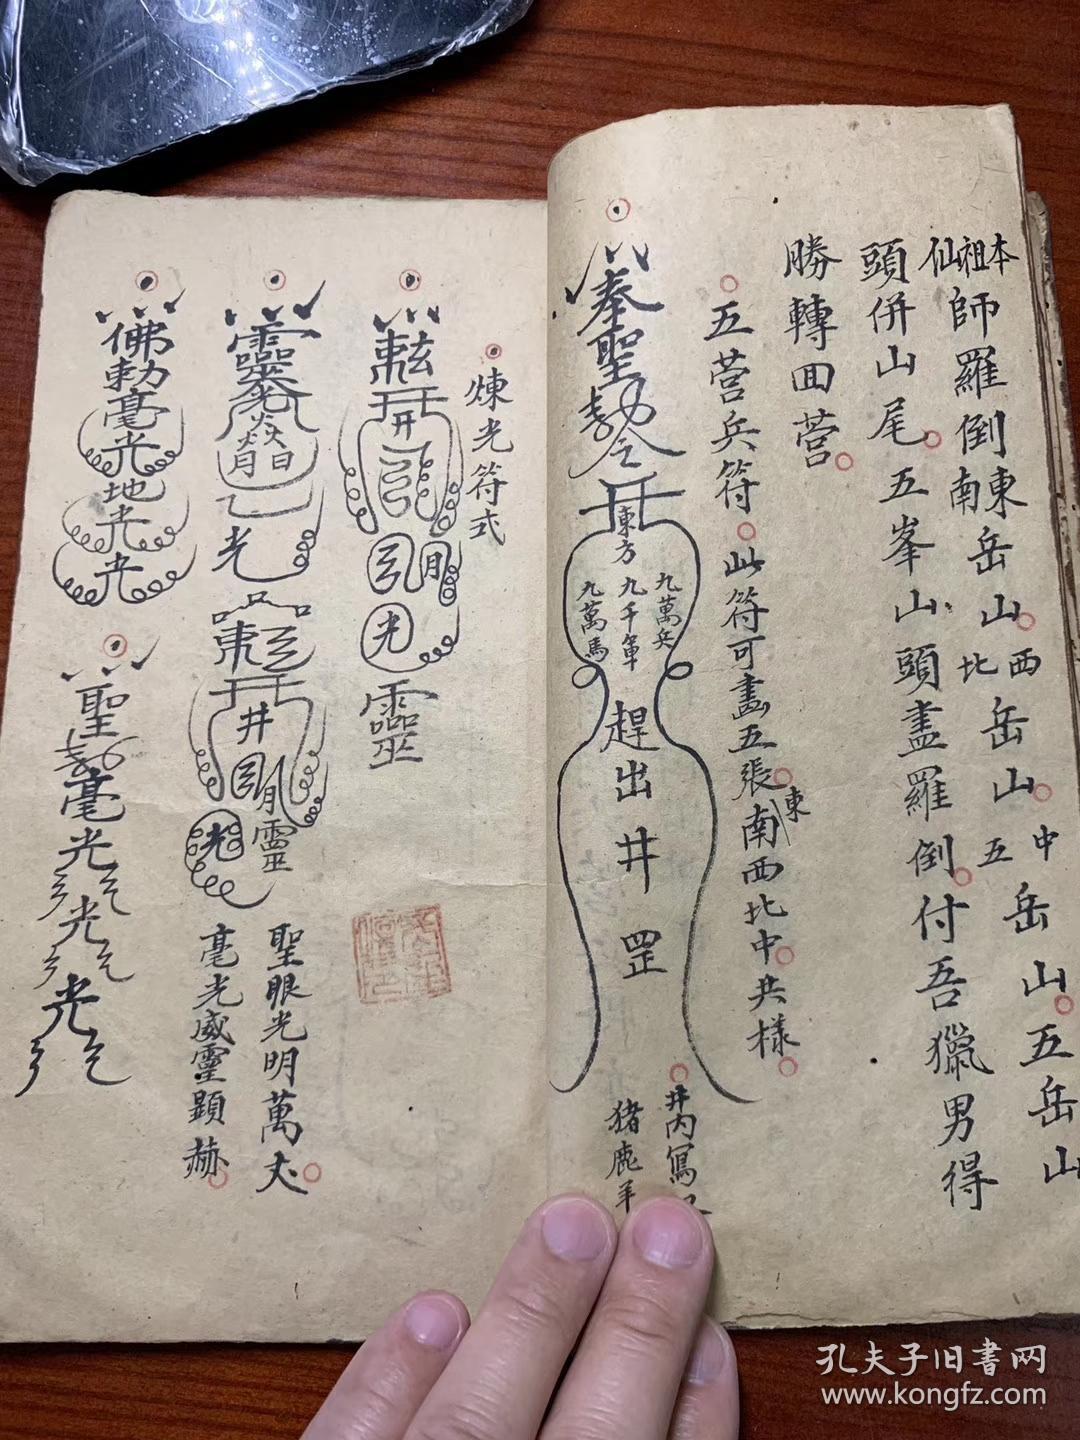 本祖仙師羅倒東南岳山西北岳山中五岳山五岳山
頭併山尾五峯山頭盡羅倒付吾獵男得
勝轉回营
五营兵符此符可畫五張東南西北中共樣
奉聖勅令
東方
九萬兵
九千軍
九萬馬
趕出井罡
井内寫
猪鹿羊
煉光符式
光
靈
光
井
靈
光
聖眼光明萬丈
毫光威靈顕赫
佛勅毫光地光光
聖
毫光光光
孔夫子旧書网
www.kongfz.com